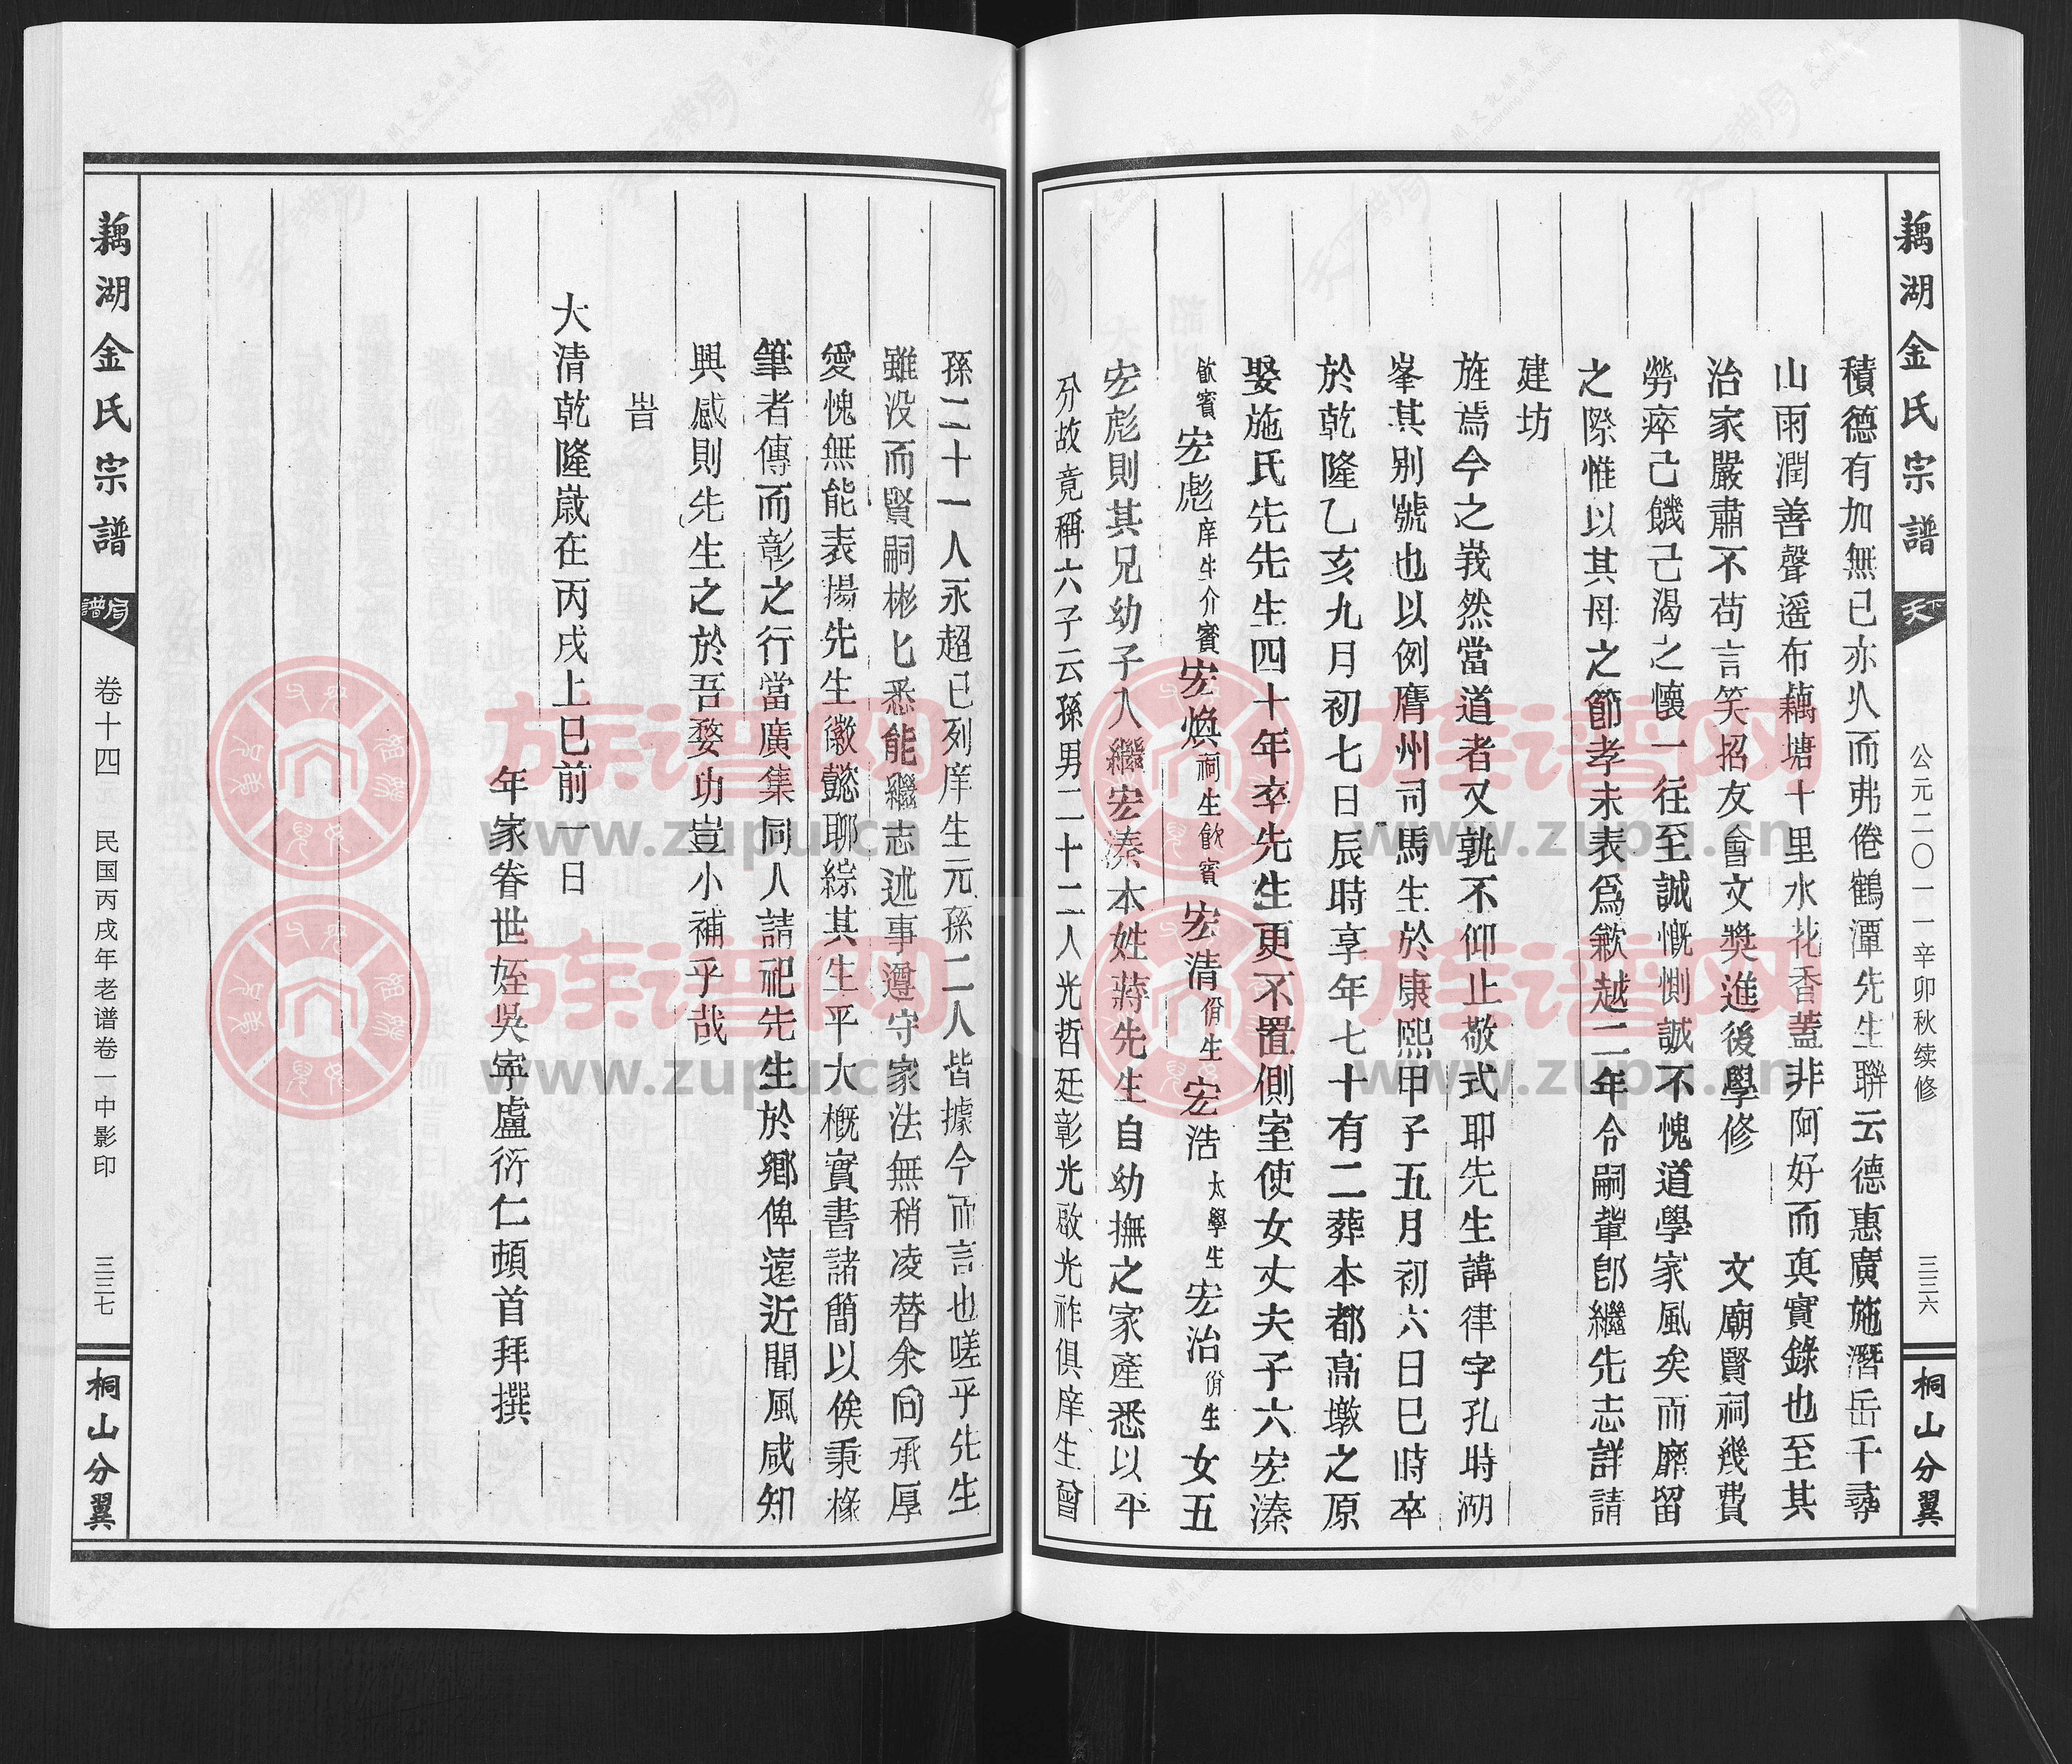 藕湖金氏宗譜
天下
公元二〇一一辛卯秋续修
三三六
桐山分翼
積德有加無已亦从而弗倦鶴潭先生聯云德惠廣施潛岳千尋
山雨潤善聲遥布藕塘十里水花香蓋非阿好而真實錄也至其
治家嚴肅不苟言笑招友會文獎進後學修 文廟賢祠幾費
勞瘁己饑己渴之懷一往至誠慨惻誠不愧道學家風矣而靡留
之際惟以其母之節孝未表爲歉越二年令嗣輩卽繼先志詳請
建坊
旌焉今之峩然當道者又孰不仰止敬式耶先生諱律字孔時湖
峯其别號也以例膺州司馬生於康熙甲子五月初六日巳時卒
於乾隆乙亥九月初七日辰時享年七十有二葬本都高墩之原
娶施氏先先生四十年卒先生更不置側室使女丈夫子六宏溱
飲賓宏彪庠生介賓宏煥祠生飲賓宏清佾生宏浩太學生宏治佾生女五
宏彪則其兄幼子入繼宏溱本姓蔣先生自幼撫之家產悉以平
分故竟稱六子云孫男二十二人光哲廷彰光啟光祚俱庠生曾
孫二十一人永超已列庠生元孫二人皆據今而言也嗟乎先生
雖没而賢嗣彬匕悉能繼志述事遵守家法無稍凌替余向承厚
愛愧無能表揚先生徽懿聊綜其生平大概實書諸簡以俟秉椽
筆者傳而彰之行當廣集同人請祀先生於鄉俾遠近聞風咸知
興感則先生之於吾婺功豈小補乎哉
旹
大清乾隆嵗在丙戌上巳前一日
年家眷世姪吳寧盧衍仁頓首拜撰
藕湖金氏宗譜
譜局
卷十四 民国丙戌年老谱卷一中影印
三三七
桐山分翼
族谱网
www.zupu.cn
族谱网
www.zupu.cn
族谱网
www.zupu.cn
族谱网
www.zupu.cn